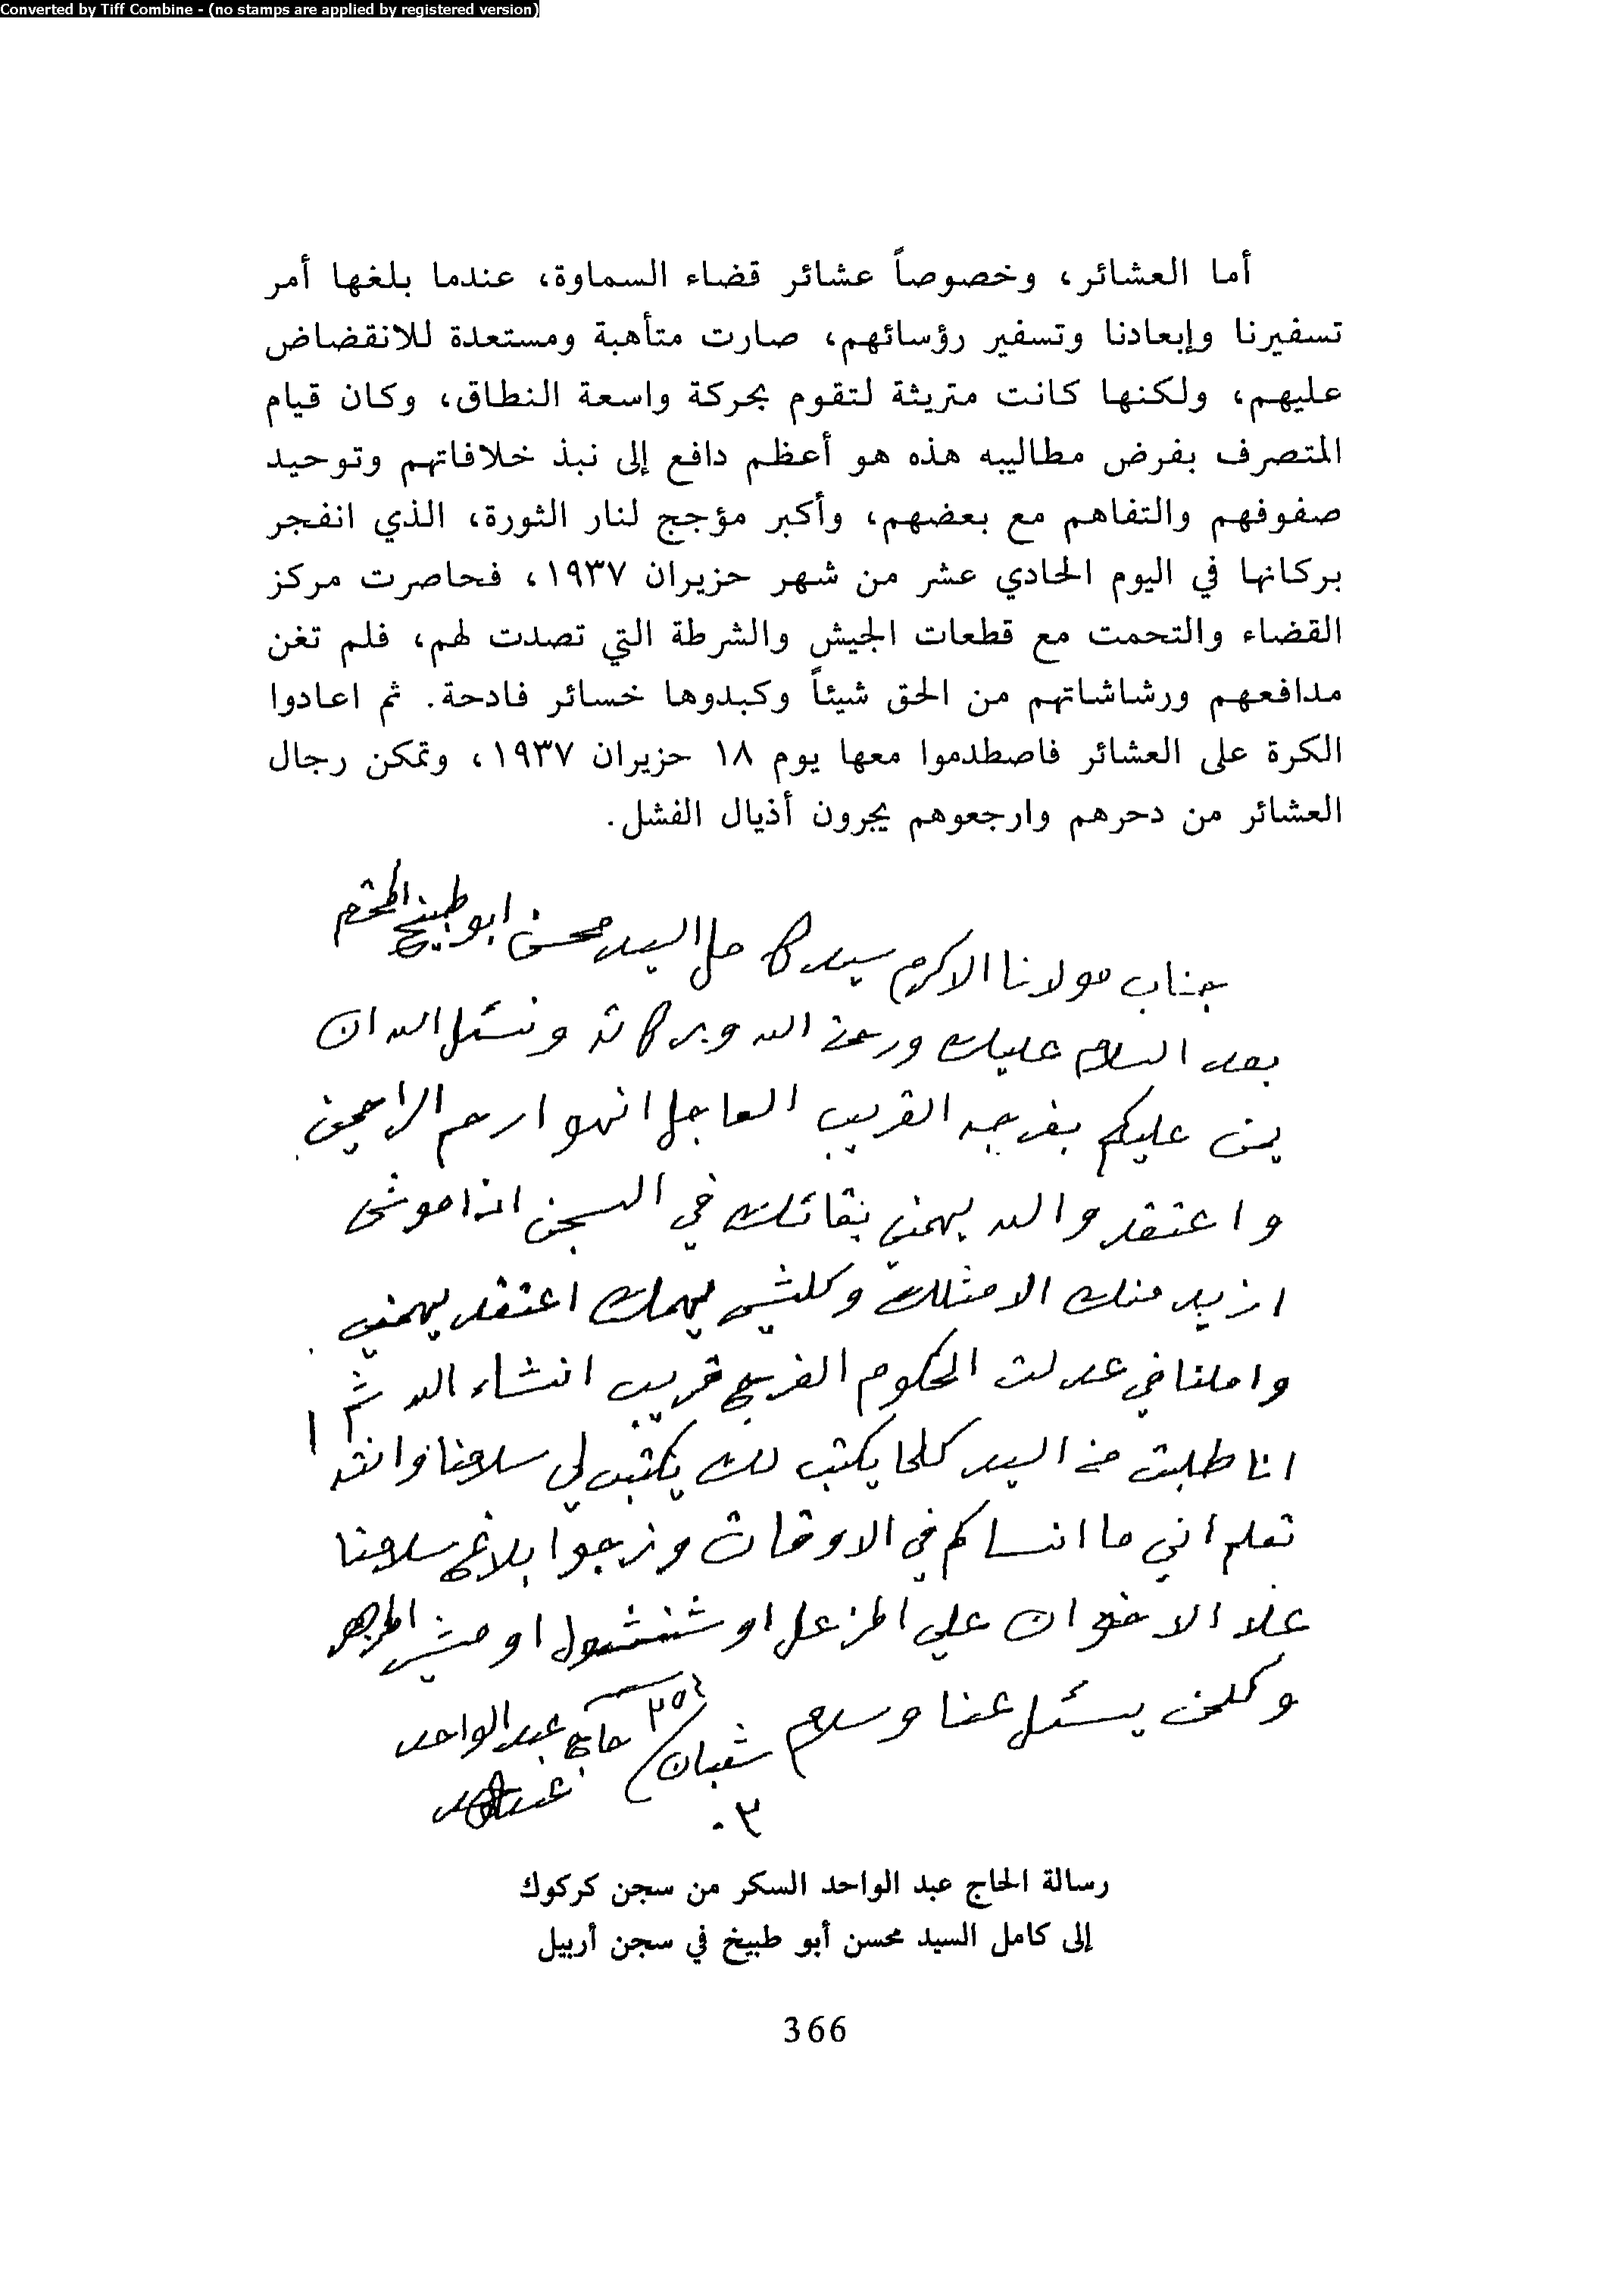 Converted by Tiff Combine - (no stamps are applied by registered version)
أما العشائر، وخصوصاً عشائر قضاء السماوة، عندما بلغها أمر
تسفيرنا وإبعادنا وتسفير رؤسائهم، صارت متأهبة ومستعدة للانقضاض
عليهم، ولكنها كانت متريثة لتقوم بحركة واسعة النطاق، وكان قيام
المتصرف بفرض مطاليبه هذه هو أعظم دافع إلى نبذ خلافاتهم وتوحيد
صفوفهم والتفاهم مع بعضهم، وأكبر مؤجج لنار الثورة، الذي انفجر
بركانها في اليوم الحادي عشر من شهر حزيران ١٩٣٧، فحاصرت مركز
القضاء والتحمت مع قطعات الجيش والشرطة التي تصدت لهم، فلم تغن
مدافعهم ورشاشاتهم من الحق شيئاً وكبدوها خسائر فادحة. ثم اعادوا
الكرة على العشائر فاصطدموا معها يوم ١٨ حزيران ١٩٣٧، وتمكن رجال
العشائر من دحرهم وارجعوهم يجرون أذيال الفشل.
جناب مولانا الاكرم سيد كامل السيد محسن ابو طبيخ المحترم
بعد السلام عليك ورحمة الله وبركاته ونسئل الله ان
يمن عليكم بفرجه القريب العاجل انهو ارحم الراحمين
واعتقد والله يهمني بقائك في السجن اذا موش
ازيد منك الا مثلك وكلشي يهمك اعتقد يهمني
واملنا في عدلت الحكوم الفرج قريب انشاء الله ثم
انا طلبت من السيد كلما يكتب لك يكتب لي سلامنا وانته
تعلم اني ما انساكم في الاوقات ونرجوا بلاغ سلامنا
علا الاخوان علي المزعل او شنشول او
وكلمن يسئل عنا وسلام شعبان ٣٥٤ حاج عبد الواحد
٣٠
رسالة الحاج عبد الواحد السكر من سجن كركوك
إلى كامل السيد محسن أبو طبيخ في سجن أربيل
366